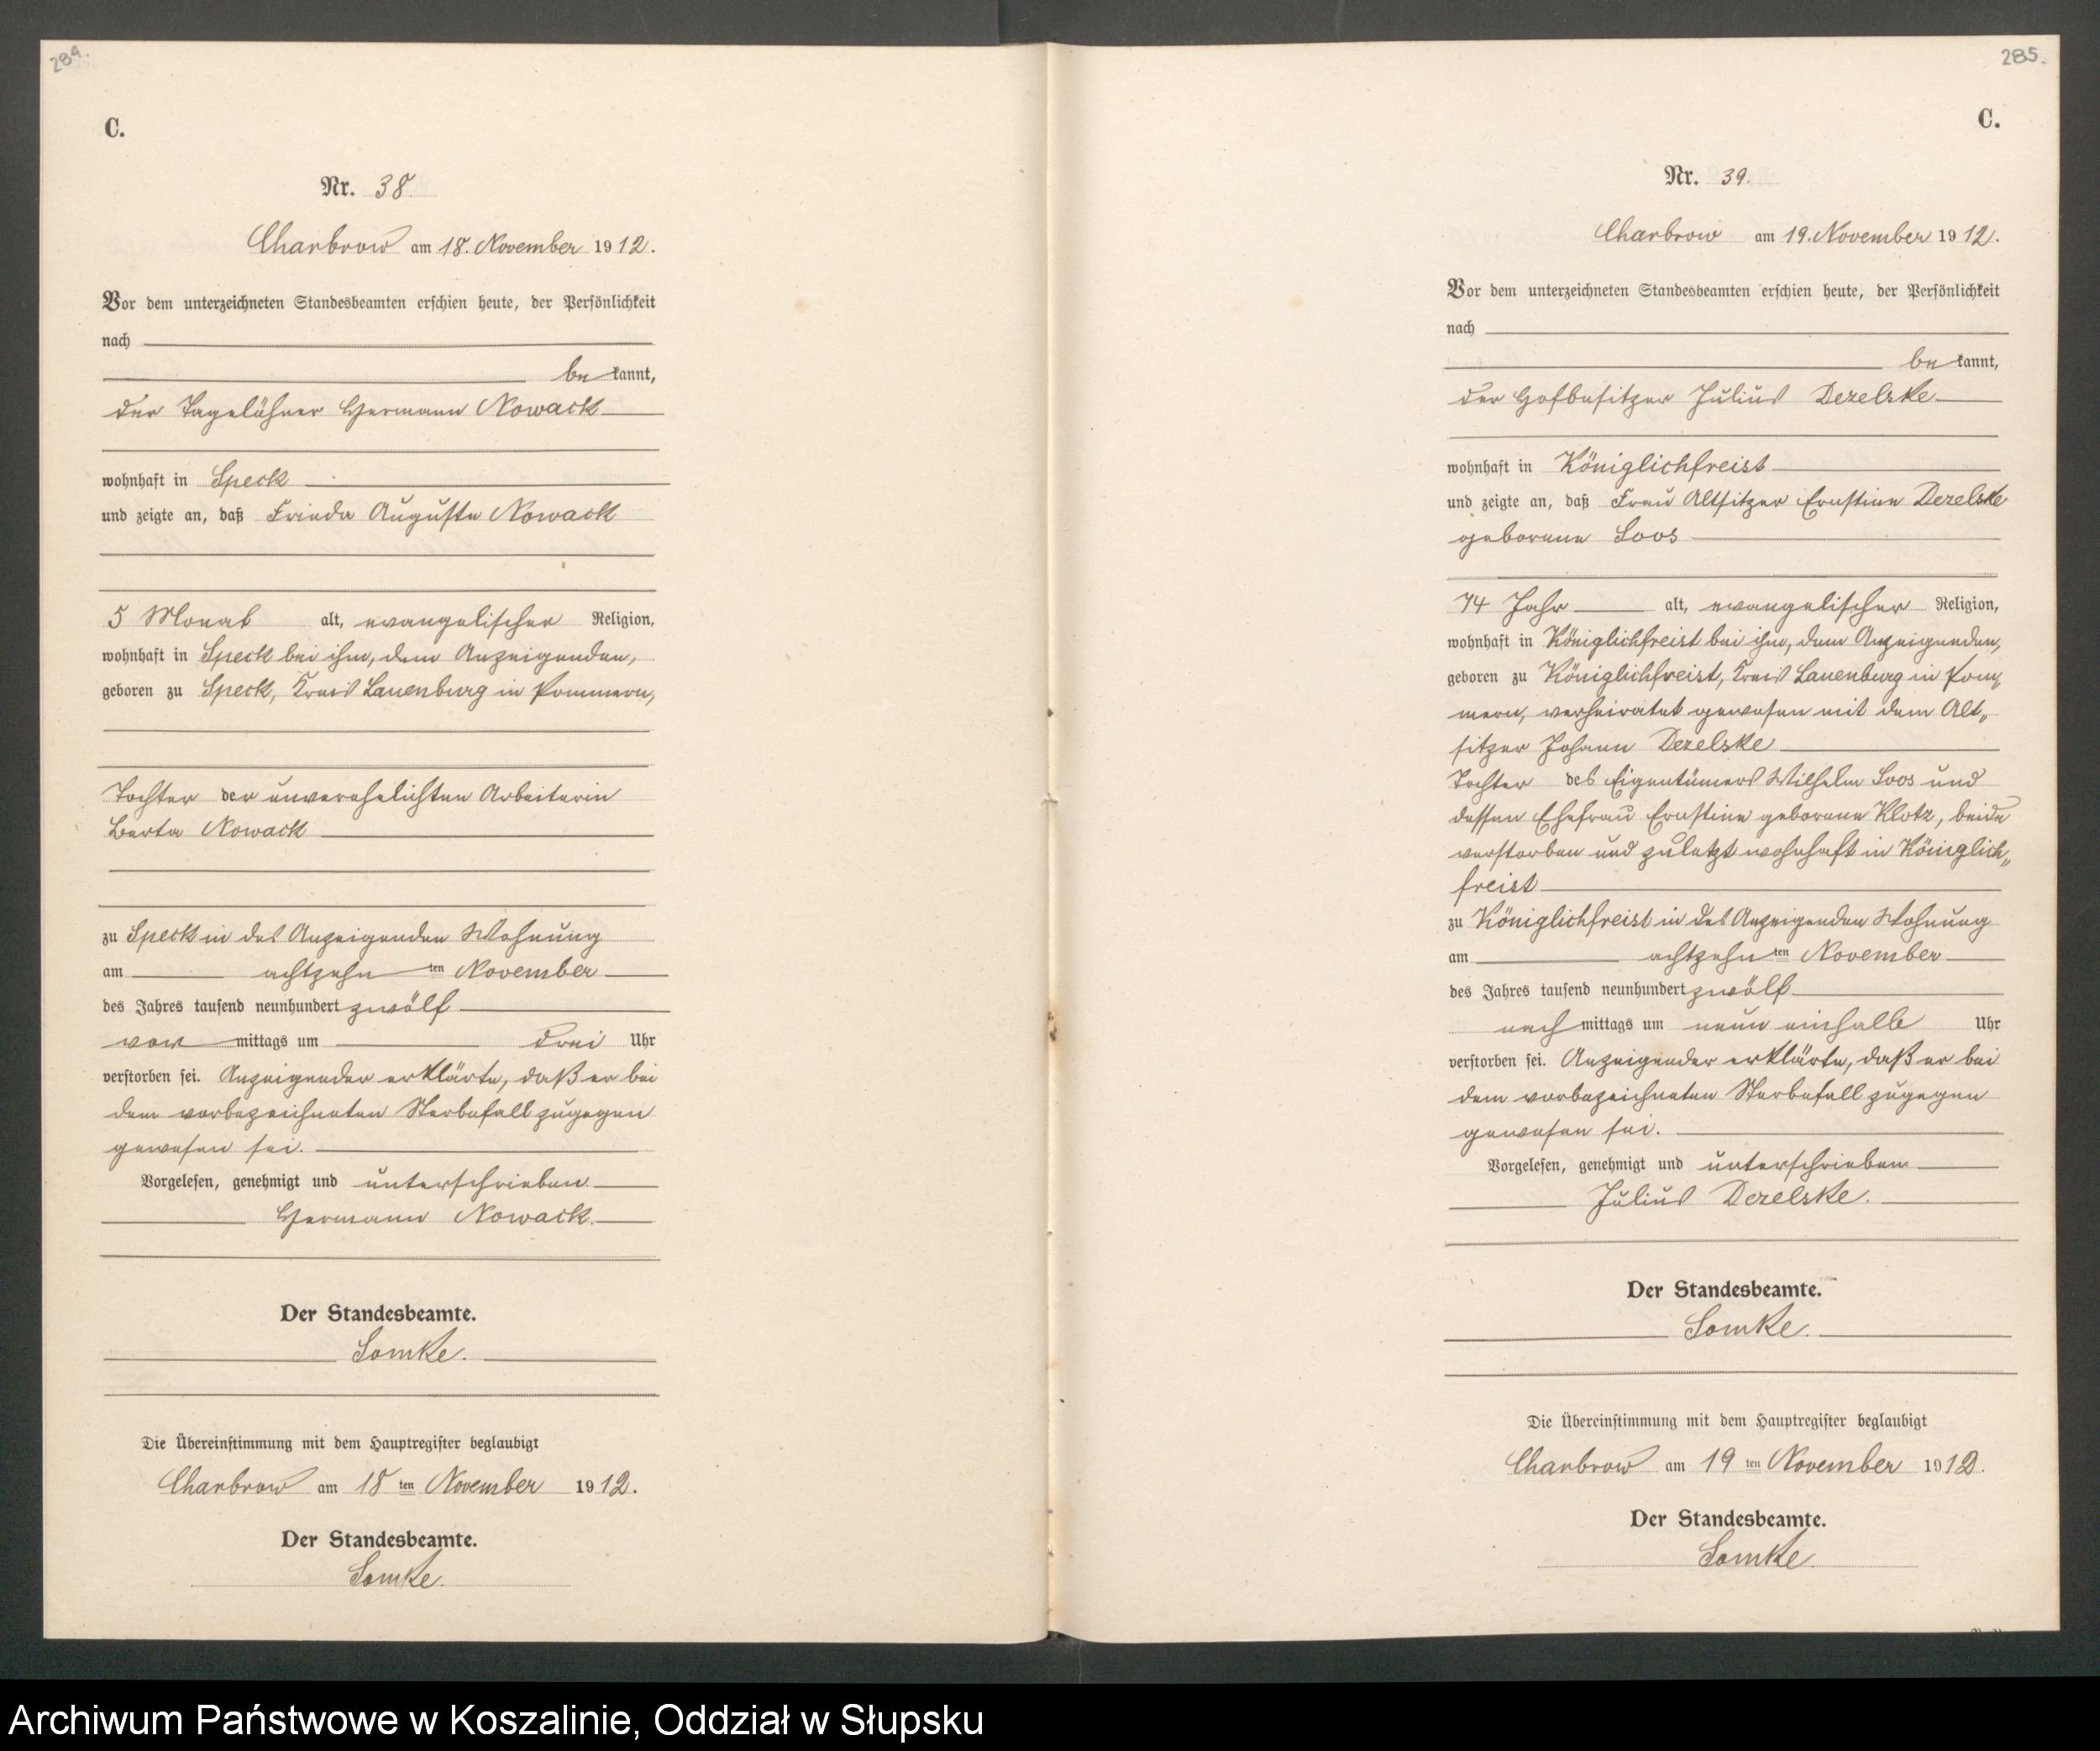 284.
C.
Nr. 38.
Charbrow am 18. November 1912.
Vor dem unterzeichneten Standesbeamten erschien heute, der Persönlichkeit
nach
be kannt,
der Tagelöhner Hermann Nowack
wohnhaft in Speck
und zeigte an, daß Frieda Auguste Nowack
5 Monat alt, evangelischer Religion,
wohnhaft in Speck bei ihm, dem Anzeigenden,
geboren zu Speck, Kreis Lauenburg in Pommern,
Tochter der unverehelichten Arbeiterin
Berta Nowack
zu Speck in des Anzeigenden Wohnung
am achtzehn ten November
des Jahres tausend neunhundert zwölf
vor mittags um drei Uhr
verstorben sei. Anzeigender erklärte, daß er bei
dem vorbezeichneten Sterbefall zugegen
gewesen sei.
Vorgelesen, genehmigt und unterschrieben.
Hermann Nowack.
Der Standesbeamte.
Lomke.
Die Übereinstimmung mit dem Hauptregister beglaubigt
Charbrow am 18 ten November 1912.
Der Standesbeamte.
Lomke.
285.
C.
Nr. 39.
Charbrow am 19. November 1912.
Vor dem unterzeichneten Standesbeamten erschien heute, der Persönlichkeit
nach
be kannt,
der Hofbesitzer Julius Dezelske
wohnhaft in Königlichfreist
und zeigte an, daß Frau Altsitzer Ernstine Dezelske
geborene Loos
74 Jahr alt, evangelischer Religion,
wohnhaft in Königlichfreist bei ihm, dem Anzeigenden,
geboren zu Königlichfreist, Kreis Lauenburg in Pom,,
mern, verheiratet gewesen mit dem Alt,,
sitzer Johann Dezelske
Tochter des Eigentümers Wilhelm Loos und
dessen Ehefrau Ernstine geborene Klotz, beide
verstorben und zuletzt wohnhaft in Königlich,,
freist
zu Königlichfreist in des Anzeigenden Wohnung
am achtzehn ten November
des Jahres tausend neunhundert zwölf
nach mittags um neun einhalb Uhr
verstorben sei. Anzeigender erklärte, daß er bei
dem vorbezeichneten Sterbefall zugegen
gewesen sei.
Vorgelesen, genehmigt und unterschrieben
Julius Dezelske.
Der Standesbeamte.
Lomke.
Die Übereinstimmung mit dem Hauptregister beglaubigt
Charbrow am 19 ten November 1912.
Der Standesbeamte.
Lomke.
Archiwum Państwowe w Koszalinie, Oddział w Słupsku